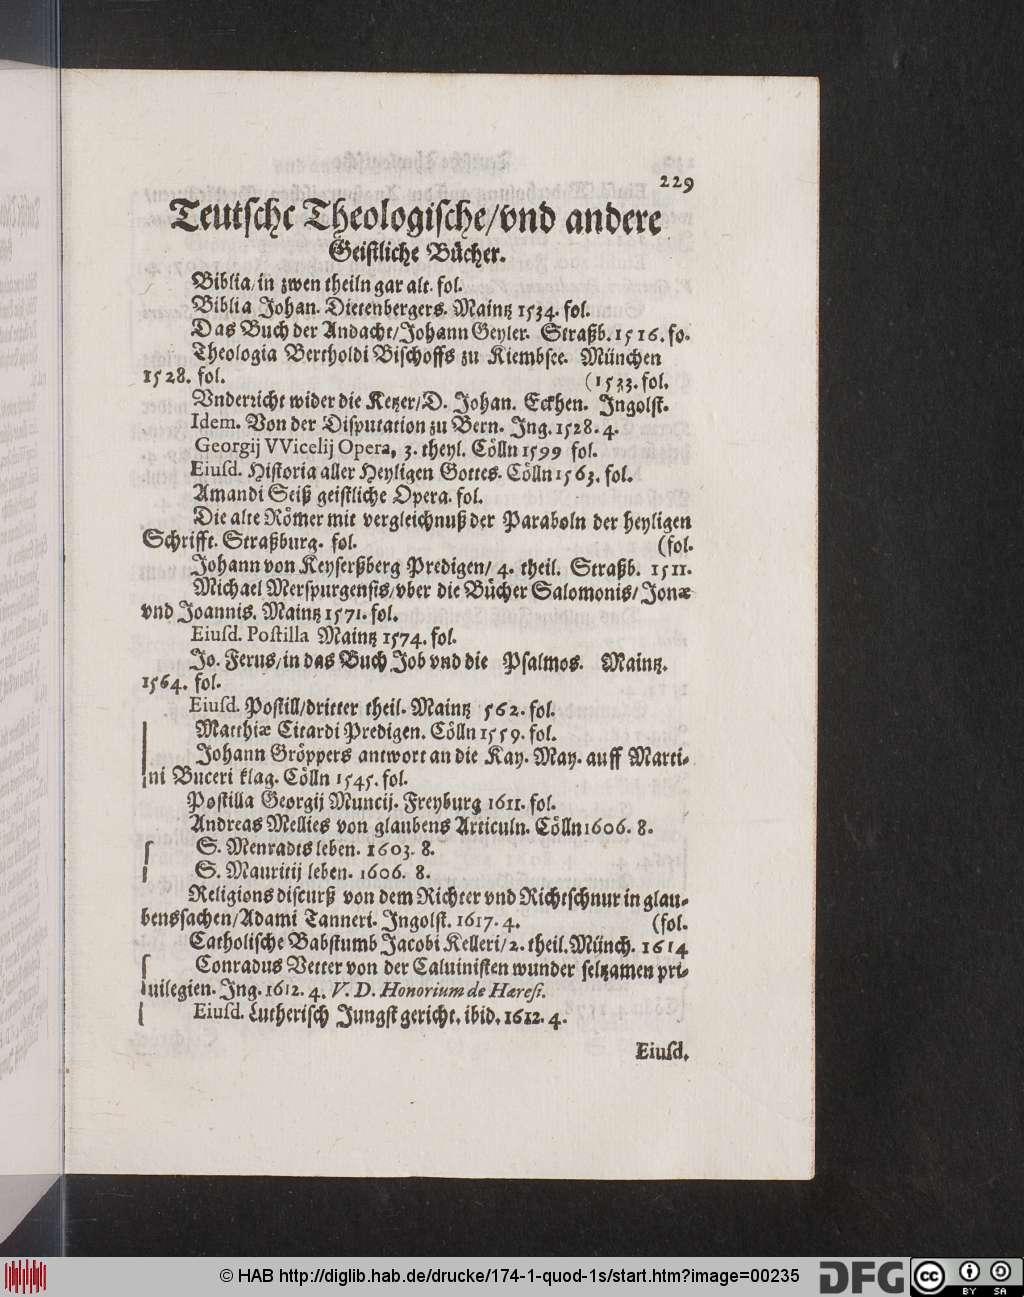 229
Teutsche Theologische/vnd andere
Geistliche Bücher.
Biblia/in zwen theiln gar alt. fol.
Biblia Johan. Dietenbergers. Maintz 1534. fol.
Das Buch der Andacht/Johann Geyler. Straßb. 1516. fo.
Theologia Bertholdi Bischoffs zu Kiembsee. München
1528. fol. (1533. fol.
Vnderricht wider die Ketzer/D. Johan. Eckhen. Ingolst.
Idem. Von der Disputation zu Bern. Ing. 1528. 4.
Georgij VVicelij Opera, 3. theyl. Cölln 1599 fol.
Eiusd. Historia aller Heyligen Gottes. Cölln 1563. fol.
Amandi Seiß geistliche Opera. fol.
Die alte Römer mit vergleichnuß der Paraboln der heyligen
Schrifft. Straßburg. fol. (fol.
Johann von Keyserßberg Predigen/ 4. theil. Straßb. 1511.
Michael Merspurgensis/vber die Bücher Salomonis/ Jonæ
vnd Joannis. Maintz 1571. fol.
Eiusd. Postilla Maintz 1574. fol.
Jo. Ferus/in das Buch Job vnd die Psalmos. Maintz.
1564. fol.
Eiusd. Postill/dritter theil. Maintz 562. fol.
Matthiæ Citardi Predigen. Cölln 1559. fol.
Johann Gröppers antwort an die Kay. May. auff Marti-
ni Buceri klag. Cölln 1545. fol.
Postilla Georgij Muncij. Freyburg 1611. fol.
Andreas Mellies von glaubens Articuln. Cölln 1606. 8.
S. Menradts leben. 1603. 8.
S. Mauritij leben. 1606. 8.
Religions discurß von dem Richter vnd Richtschnur in glau-
benssachen/Adami Tanneri. Ingolst. 1617. 4. (fol.
Catholische Babstumb Jacobi Kelleri/2. theil. Münch. 1614
Conradus Vetter von der Caluinisten wunder seltzamen pri-
uilegien. Ing. 1612. 4. V. D. Honorium de Hæresi.
Eiusd. Lutherisch Jungst gericht. ibid. 1612. 4.
Eiusd.
© HAB http://diglib.hab.de/drucke/174-1-quod-1s/start.htm?image=00235
DFG
cc
BY SA